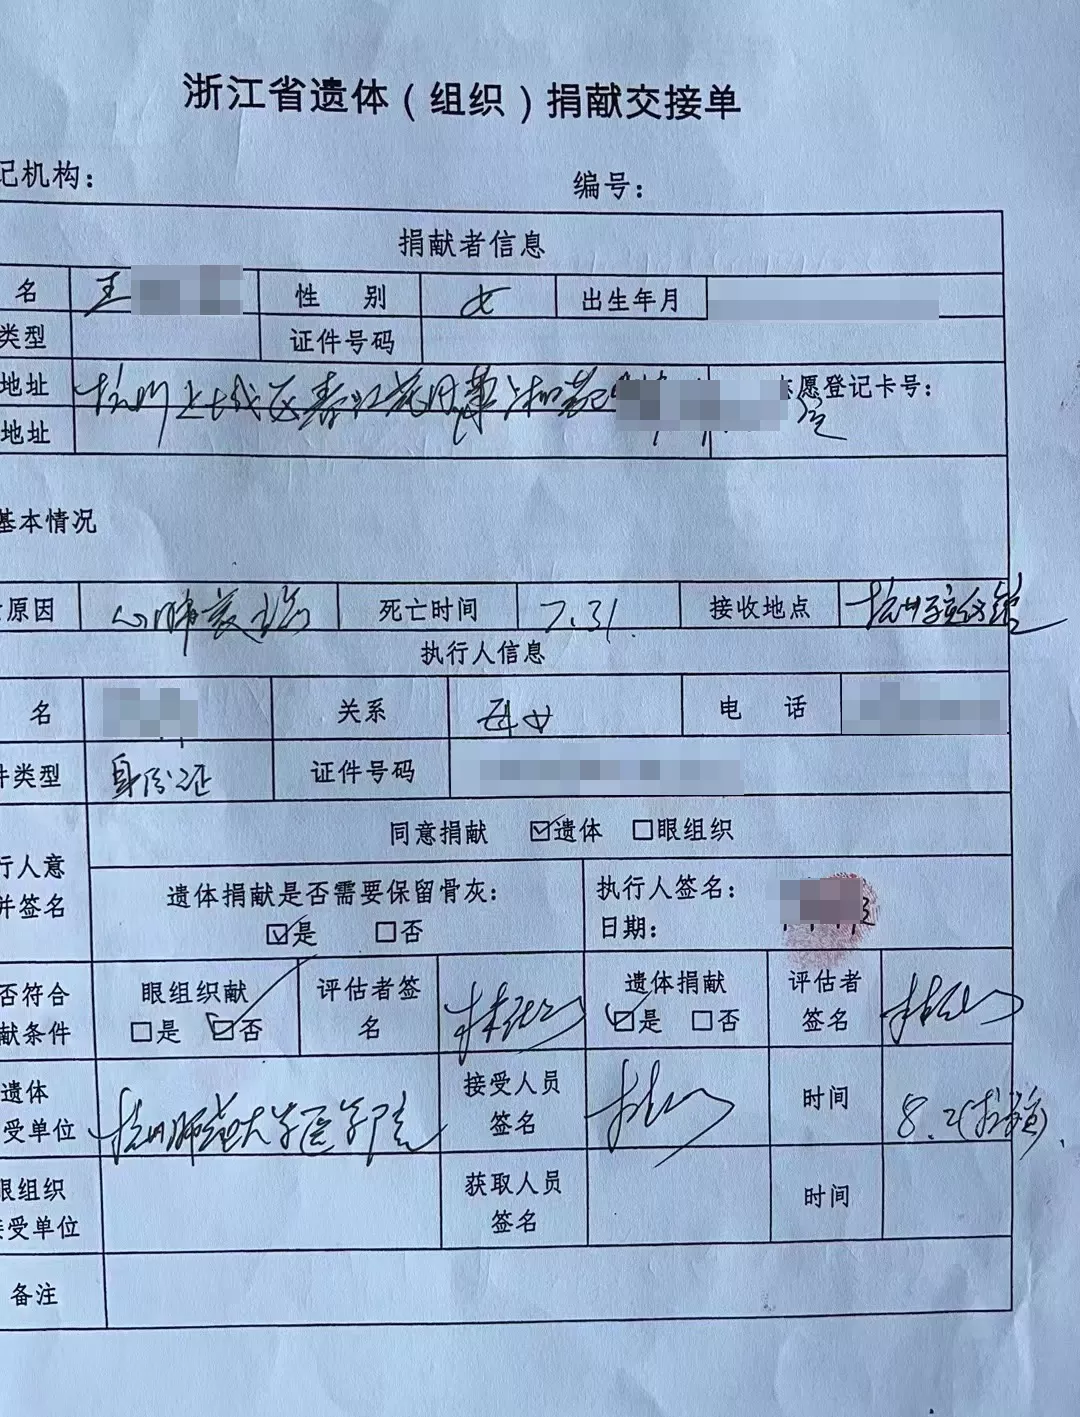 浙江省遗体（组织）捐献交接单
记机构： 编号：
捐献者信息
名 王 性 别 女 出生年月
类型 证件号码
地址 杭州上城区春江花月 志愿登记卡号：
地址 室
基本情况
原因 心肺衰竭 死亡时间 7.31. 接收地点 杭州殡仪馆
执行人信息
名 关系 母女 电 话
件类型 身份证 证件号码
同意捐献 ☑遗体 □眼组织
行人意
并签名
遗体捐献是否需要保留骨灰：
☑是 □否
执行人签名：
日期：
否符合
献条件
眼组织献
□是 ☑否
评估者签
名
遗体捐献
☑是 □否
评估者
签名
遗体
受单位
杭州师范大学医学院
接受人员
签名
时间
8.2
眼组织
接受单位
获取人员
签名
时间
备注